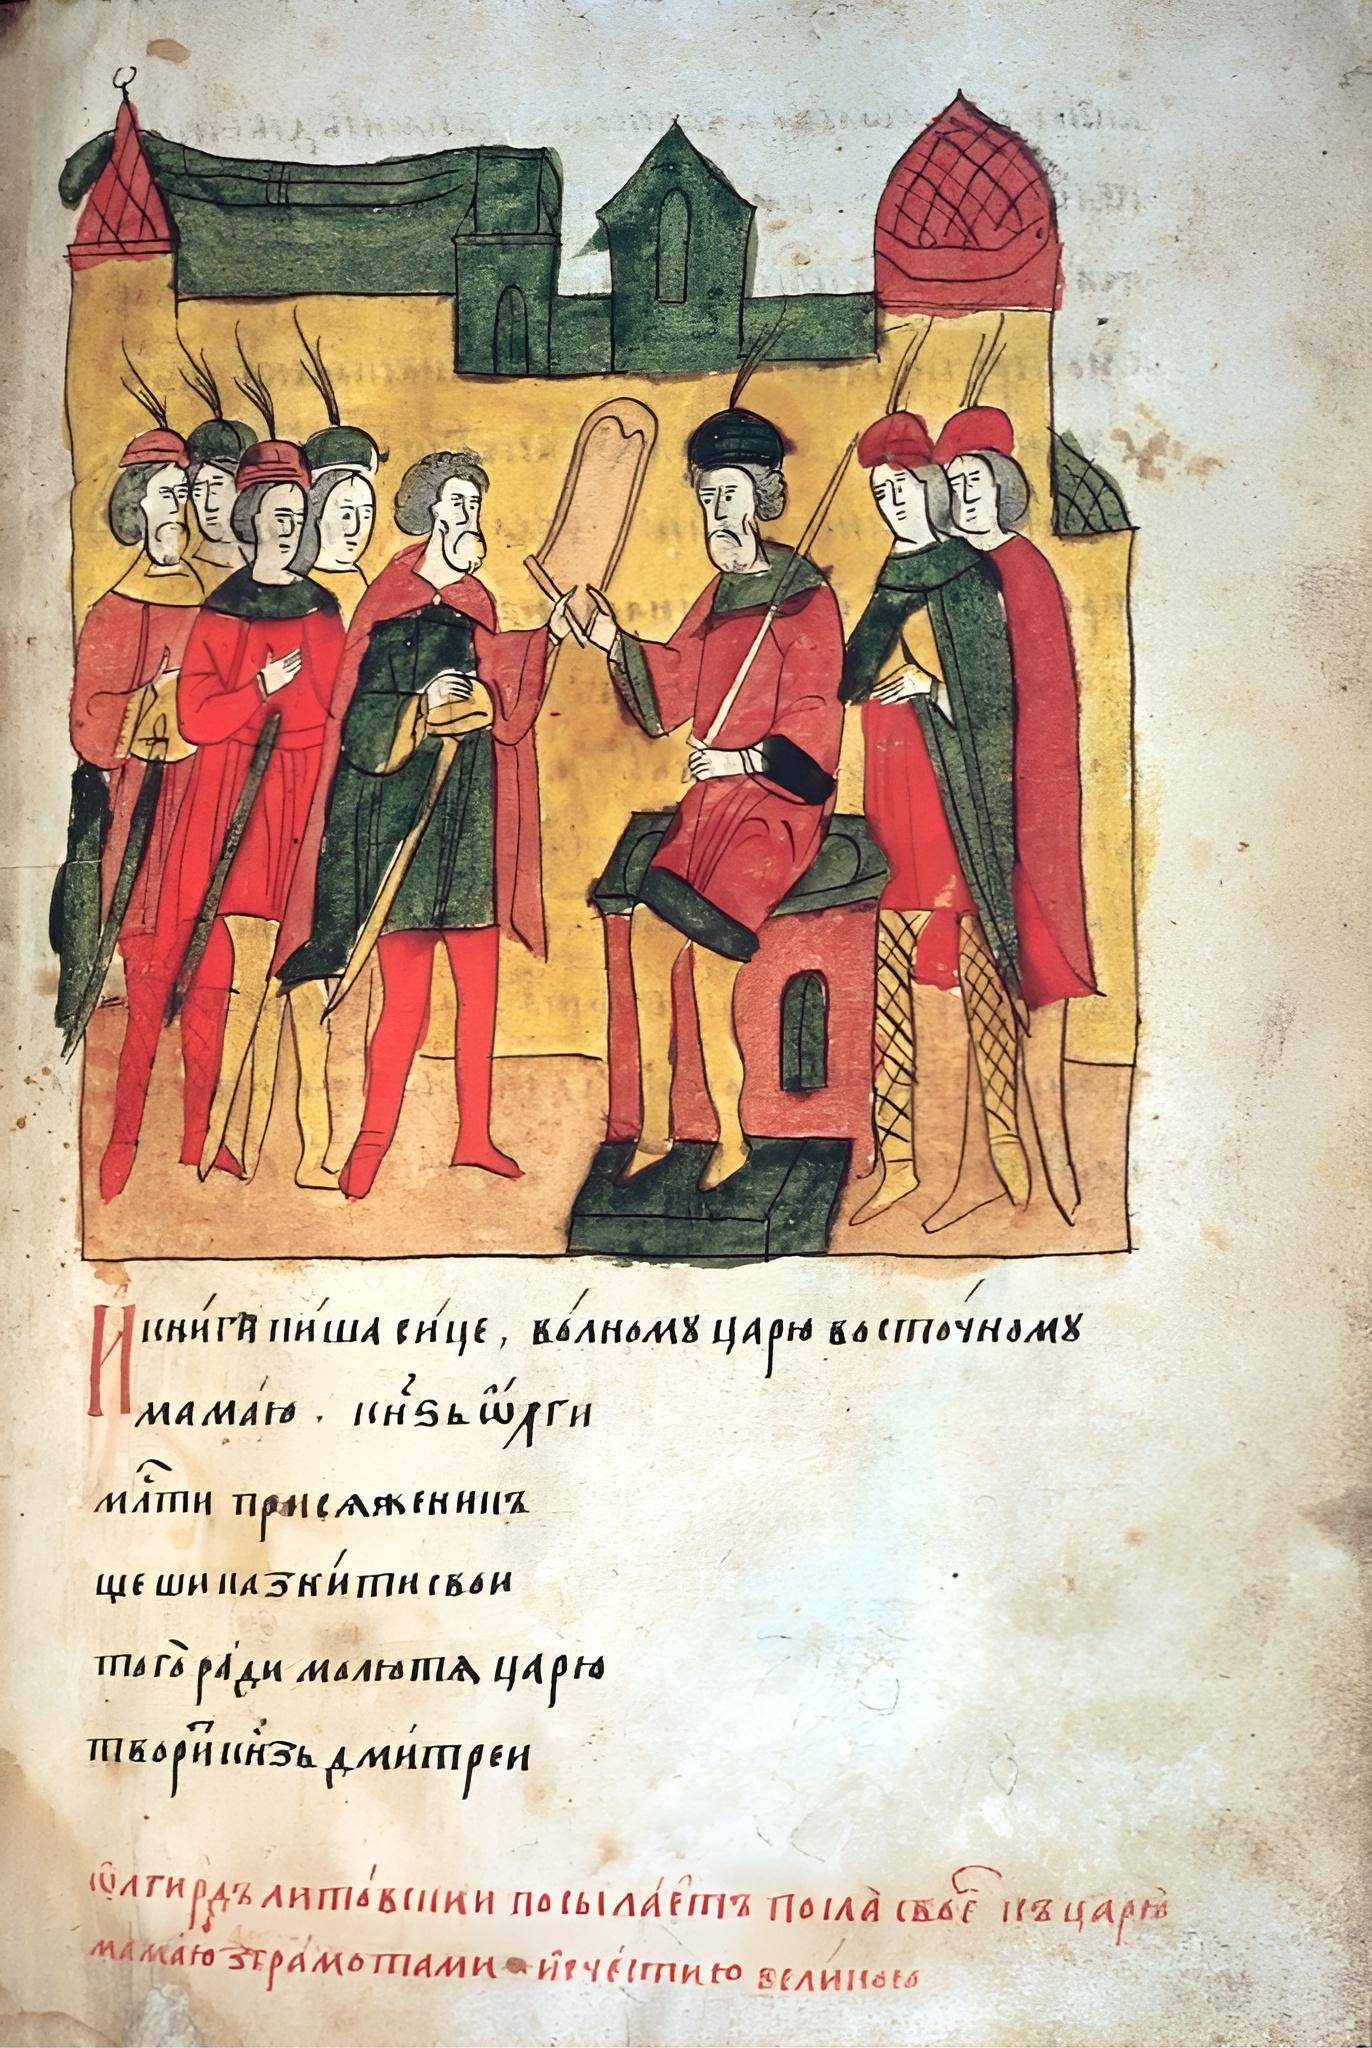 И҆ книги пи́ша си́це, во́лному царю восто́чному
мама́ю. кн҃ѕь ѡ҆лги
мл҃ти присѧженикъ
ще ши казни́ти свои
того̀ ра́ди молютѧ царю
твори кн҃зь дми́треи
ѡ҆лгирдъ лито́вски посыла́етъ посла̀ свое къ царю
мама́ю з гра́мотами и҆ с че́стию вели́кою